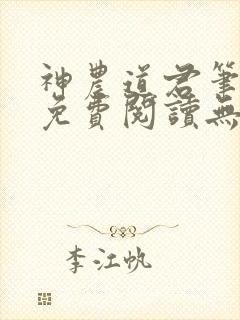 神農道君筆
免費閱讀無
李江帆